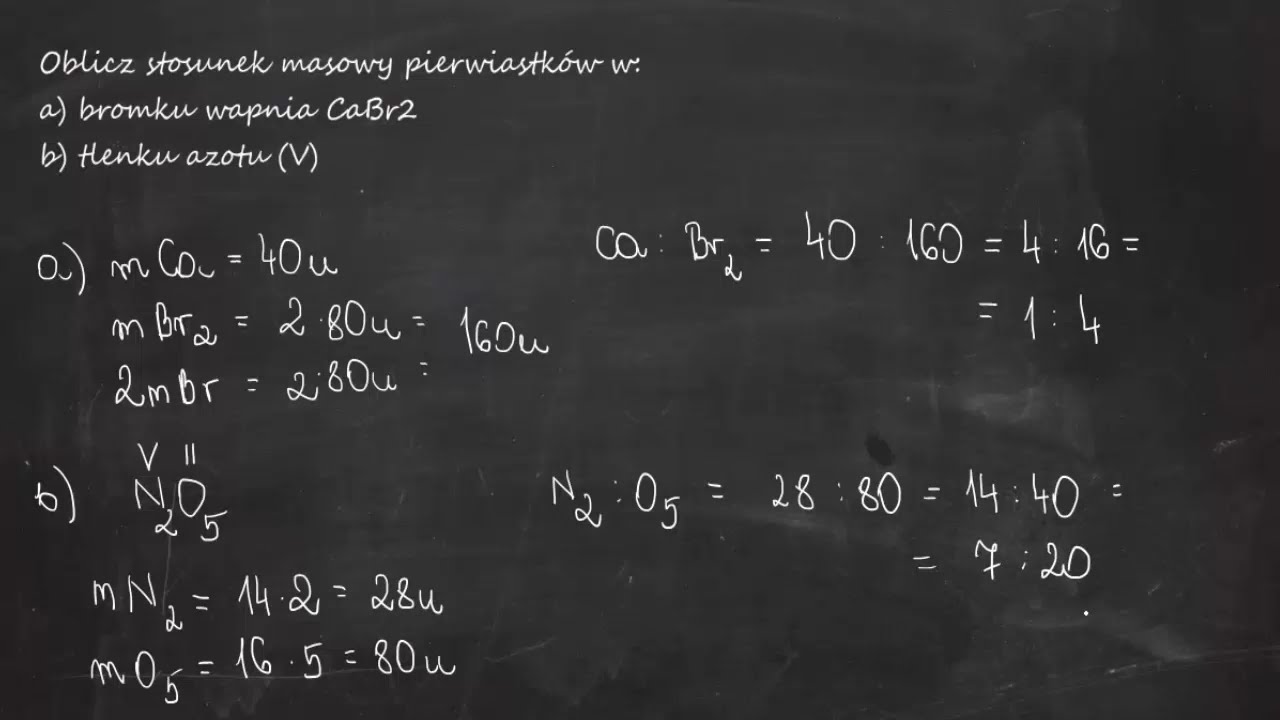 Oblicz stosunek masowy pierwiastków w:
a) bromku wapnia CaBr2
b) tlenku azotu (V)
a) mCa = 40u
mBr₂ = 2·80u = 160u
2mBr = 2·80u =
Ca : Br₂ = 40 : 160 = 4 : 16 =
= 1 : 4
b) V II
N₂O₅
mN₂ = 14·2 = 28u
mO₅ = 16·5 = 80u
N₂ : O₅ = 28 : 80 = 14 : 40 =
= 7 : 20